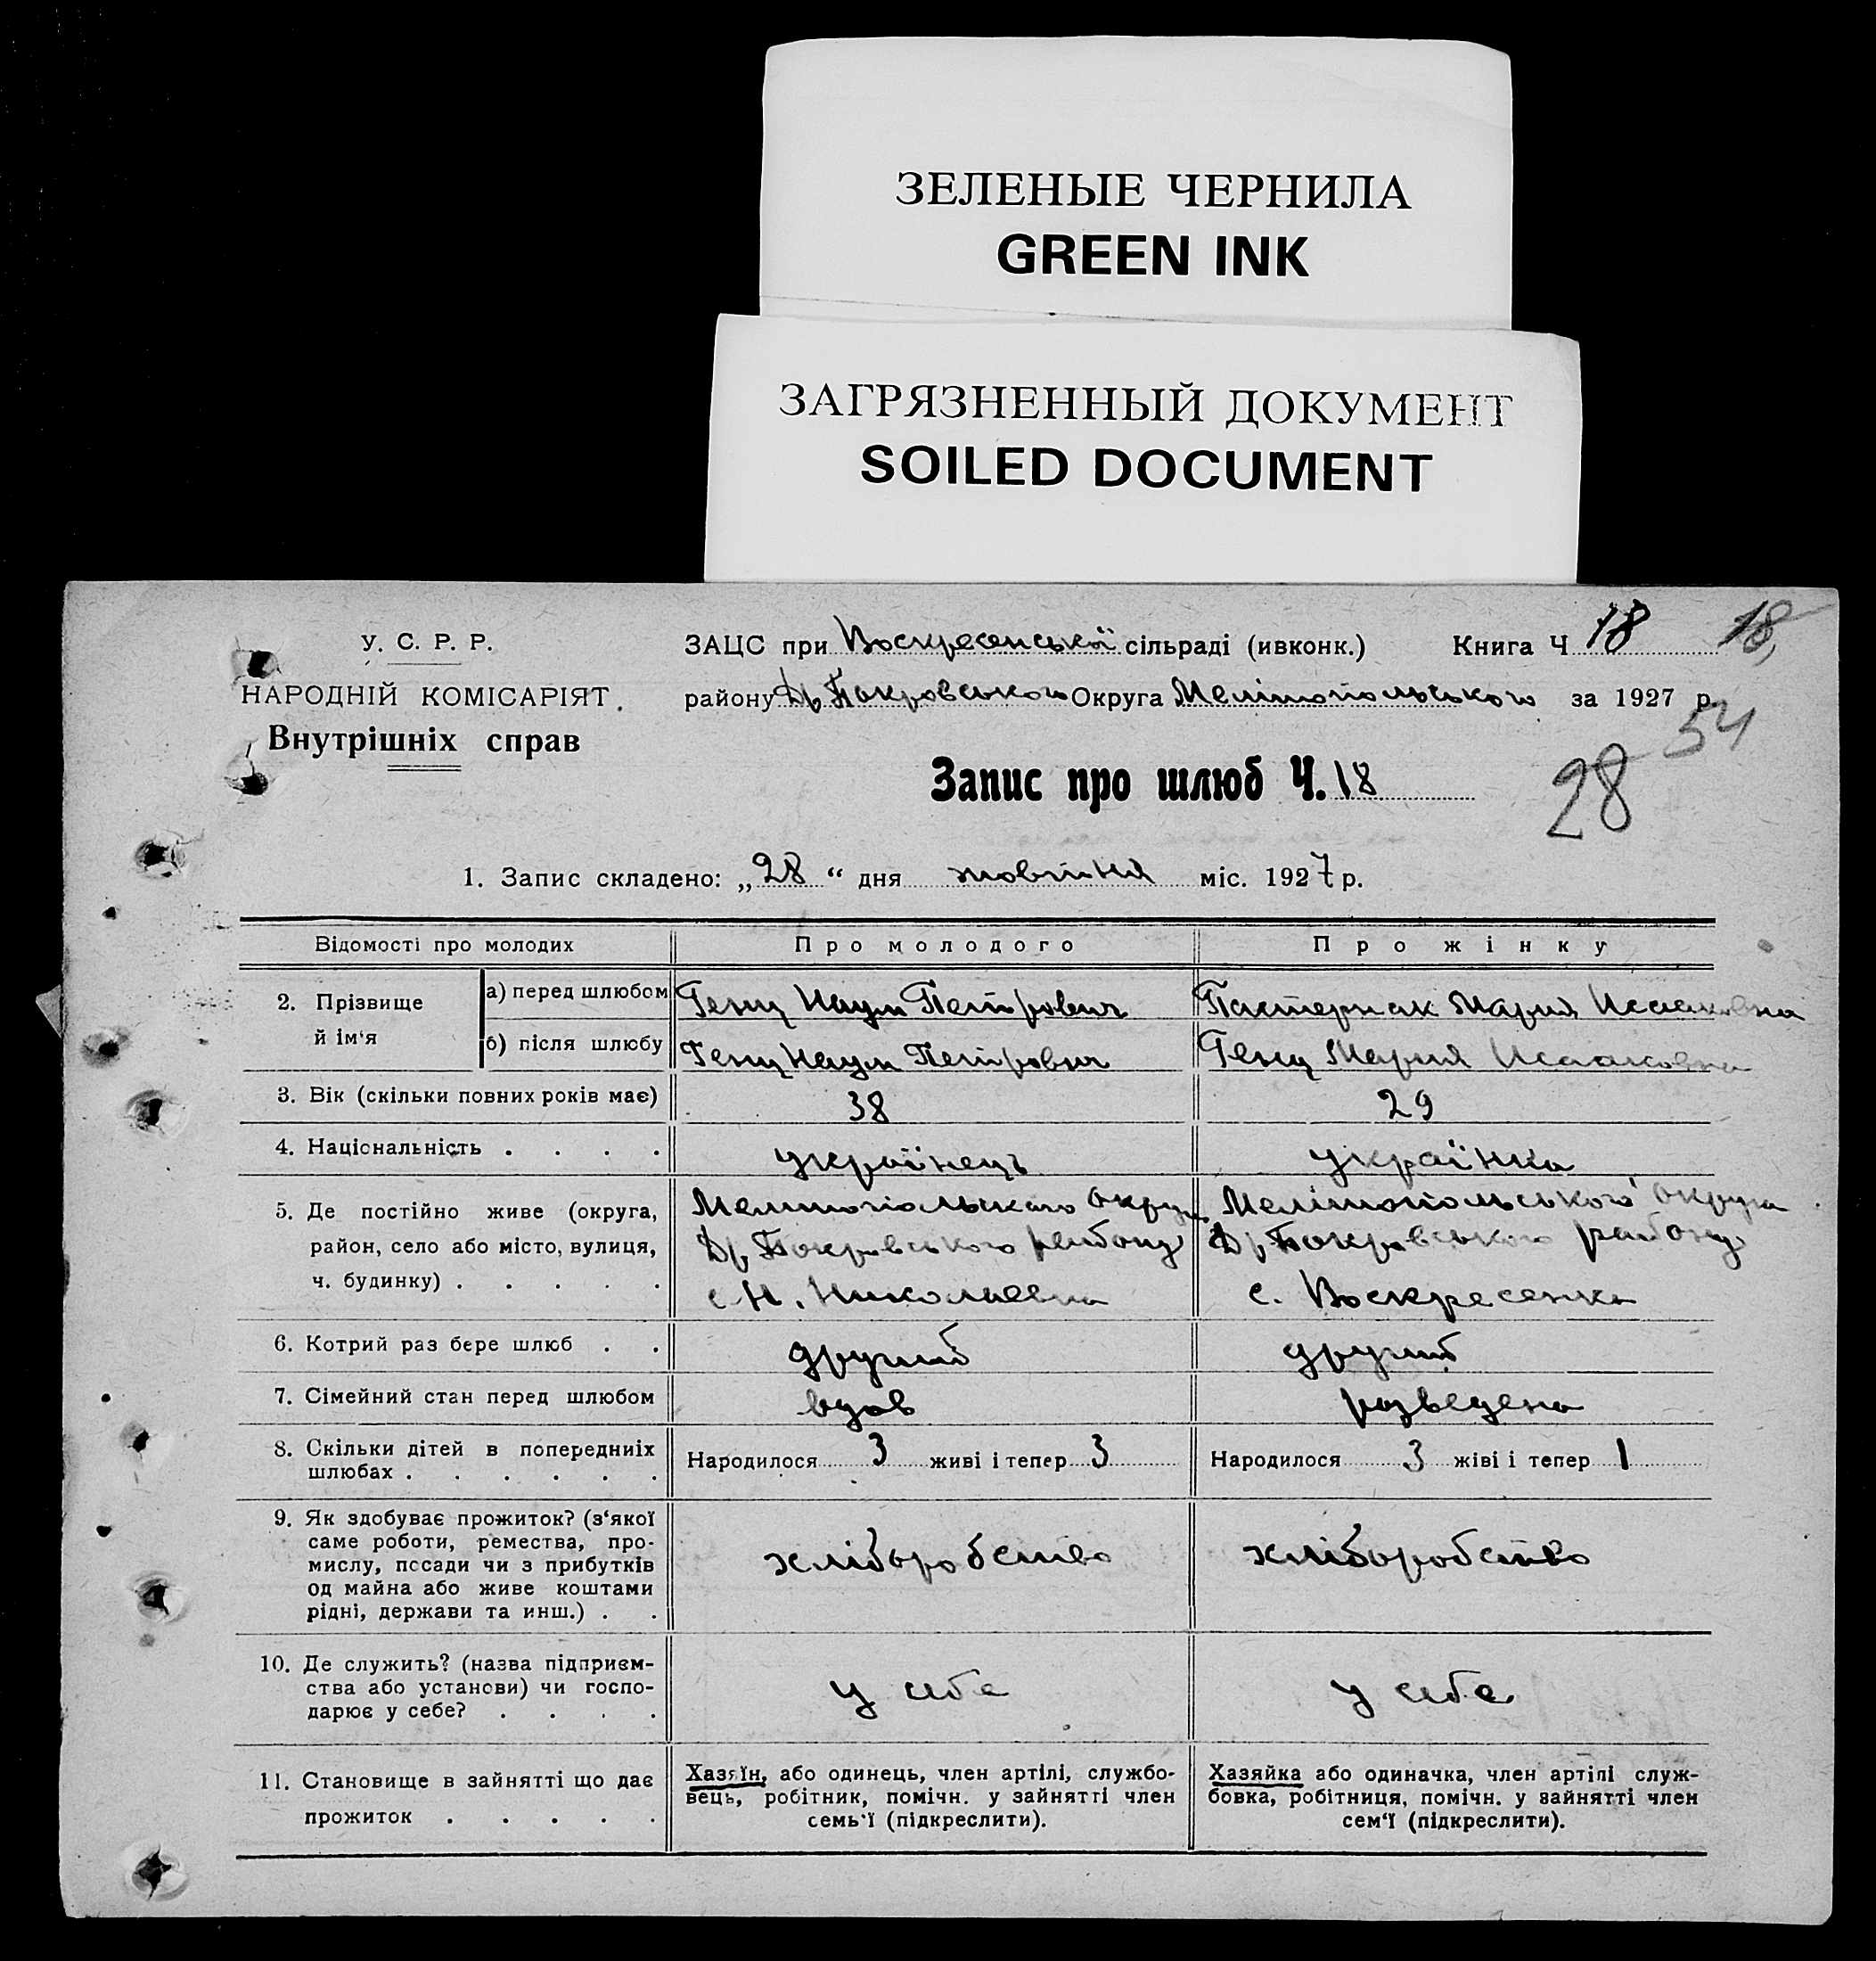 ЗЕЛЕНЫЕ ЧЕРНИЛА
GREEN INK
ЗАГРЯЗНЕННЫЙ ДОКУМЕНТ
SOILED DOCUMENT
У. С. Р. Р.
НАРОДНІЙ КОМІСАРІЯТ
Внутрішніх справ
ЗАЦС при Воскресенській сільраді (ивконк.) Книга Ч 18 18
району Др Покровського Округа Мелітопольського за 1927 р.
54
28
Запис про шлюб Ч. 18
1. Запис складено: „28“ дня жовтня міс. 1927 р.
Відомості про молодих Про молодого Про жінку
2. Прізвище й ім'я а) перед шлюбом Генц Наум Петрович Пастернак Мария Исааковна
б) після шлюбу Генц Наум Петрович Генц Мария Исааковна
3. Вік (скільки повних років має) 38 29
4. Національність . . . . українець українка
5. Де постійно живе (округа, Мелитопольского округи Мелітопольського округа
район, село або місто, вулиця, Др, Покровського району Др, Покровського району
ч. будинку) . . . . . с. Н. Николаевка с. Воскресенка
6. Котрий раз бере шлюб . . другий другий
7. Сімейний стан перед шлюбом вдов розведена
8. Скільки дітей в попередниіх Народилося 3 живі і тепер 3 Народилося 3 жіві і тепер 1
шлюбах . . . . . .
9. Як здобуває прожиток? (з'якої
саме роботи, ремества, про-
мислу, посади чи з прибутків хліборобство хліборобство
од майна або живе коштами
рідні, держави та инш.) . .
10. Де служить? (назва підприєм-
ства або установи) чи госпо- у себе у себе
дарює у себе? . . . .
11. Становище в зайнятті що дає
прожиток . . . . .
Хазяїн, або одинець, член артілі, службо-
вець, робітник, помічн. у зайнятті член
семь'ї (підкреслити).
Хазяйка або одиначка, член артілі служ-
бовка, робітниця, помічн. у зайнятті член
сем'ї (підкреслити).